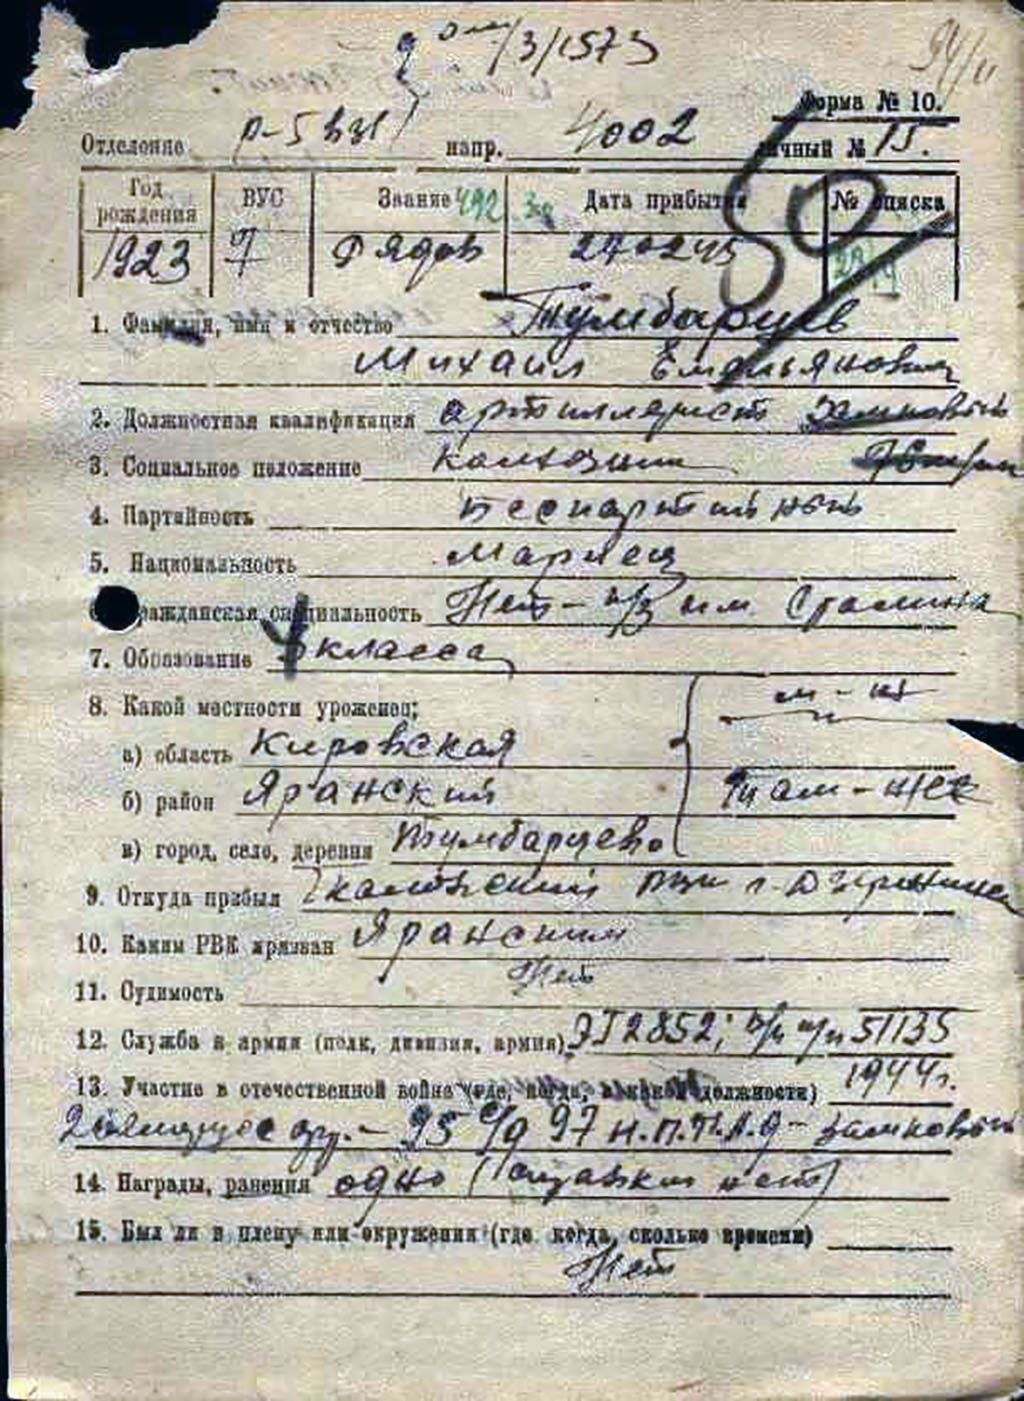 /3/1573
94/11
Форма № 10.
Отделение напр. 4002 личный № 15.
Год рождения ВУС Звание 492 Дата прибытия № списка
1923 7 Рядов 270245
50
1. Фамилия, имя и отчество Тумбарцев
Михаил Емельянович
2. Должностная квалификация артиллерист замковый
3. Социальное положение колхозник
4. Партийность беспартийный
5. Национальность Мариец
6. Гражданская специальность Нет - к/з им. Сталина
7. Образование 4 класса
8. Какой местности уроженец: м - ц
а) область Кировская
б) район Яранский там-же
в) город, село, деревня Тумбарцево
9. Откуда прибыл РПП г.
10. Каким РВК призван Яранским
11. Судимость Нет
12. Служба в армии (полк, дивизия, армия) ЭГ2852; п/п 51135
13. Участие в отечественной войне (где, когда, в какой должности) 1944г.
95 с/д 97 замковый
14. Награды, ранения одно (справки нет)
15. Был ли в плену или окружении (где, когда, сколько времени)
Нет